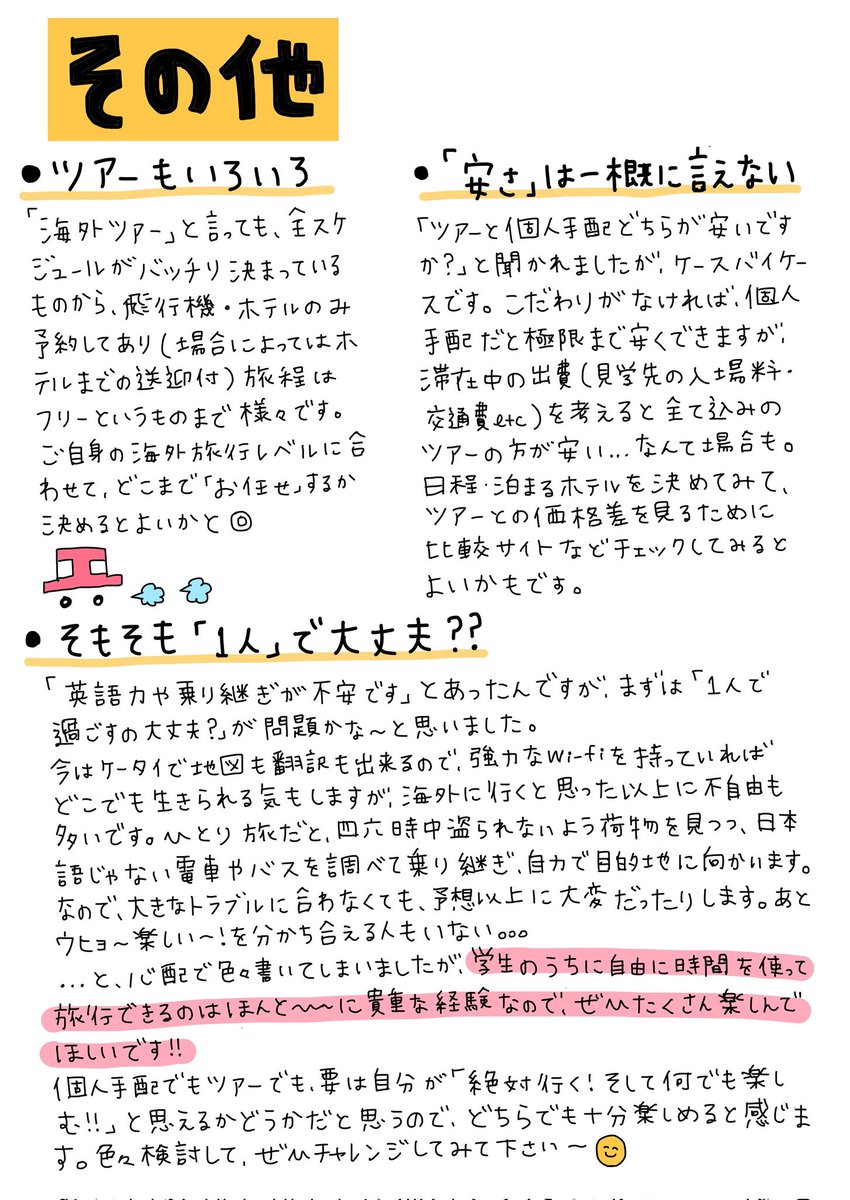 その他
・ツアーもいろいろ
「海外ツアー」と言っても、全スケ
ジュールがバッチリ決まっている
ものから、飛行機・ホテルのみ
予約してあり(場合によってはホ
テルまでの送迎付)旅程は
フリーというものまで様々です。
ご自身の海外旅行レベルに合
わせて、どこまで「お任せ」するか
決めるとよいかと◎
・「安さ」は一概に言えない
「ツアーと個人手配どちらが安いです
か?」と聞かれましたが、ケースバイケー
スです。こだわりがなければ、個人
手配だと極限まで安くできますが、
滞在中の出費(見学先の入場料・
交通費etc)を考えると全て込みの
ツアーの方が安い…なんて場合も。
日程・泊まるホテルを決めてみて、
ツアーとの価格差を見るために
比較サイトなどチェックしてみると
よいかもです。
・そもそも「1人」で大丈夫??
「英語力や乗り継ぎが不安です」とあったんですが、まずは「1人で
過ごすの大丈夫?」が問題かな〜と思いました。
今はケータイで地図も翻訳も出来るので、強力なWi-fiを持っていれば
どこでも生きられる気もしますが、海外に行くと思った以上に不自由も
多いです。ひとり旅だと、四六時中盗られないよう荷物を見つつ、日本
語じゃない電車やバスを調べて乗り継ぎ、自力で目的地に向かいます。
なので、大きなトラブルに合わなくても、予想以上に大変だったりします。あと
ウヒョ〜楽しい〜!を分かち合える人もいない。。。
…と、心配で色々書いてしまいましたが、学生のうちに自由に時間を使って
旅行できるのはほんと〜〜に貴重な経験なので、ぜひたくさん楽しんで
ほしいです!!
個人手配でもツアーでも、要は自分が「絶対行く!そして何でも楽し
む!!」と思えるかどうかだと思うので、どちらでも十分楽しめると感じま
す。色々検討して、ぜひチャレンジしてみて下さい〜